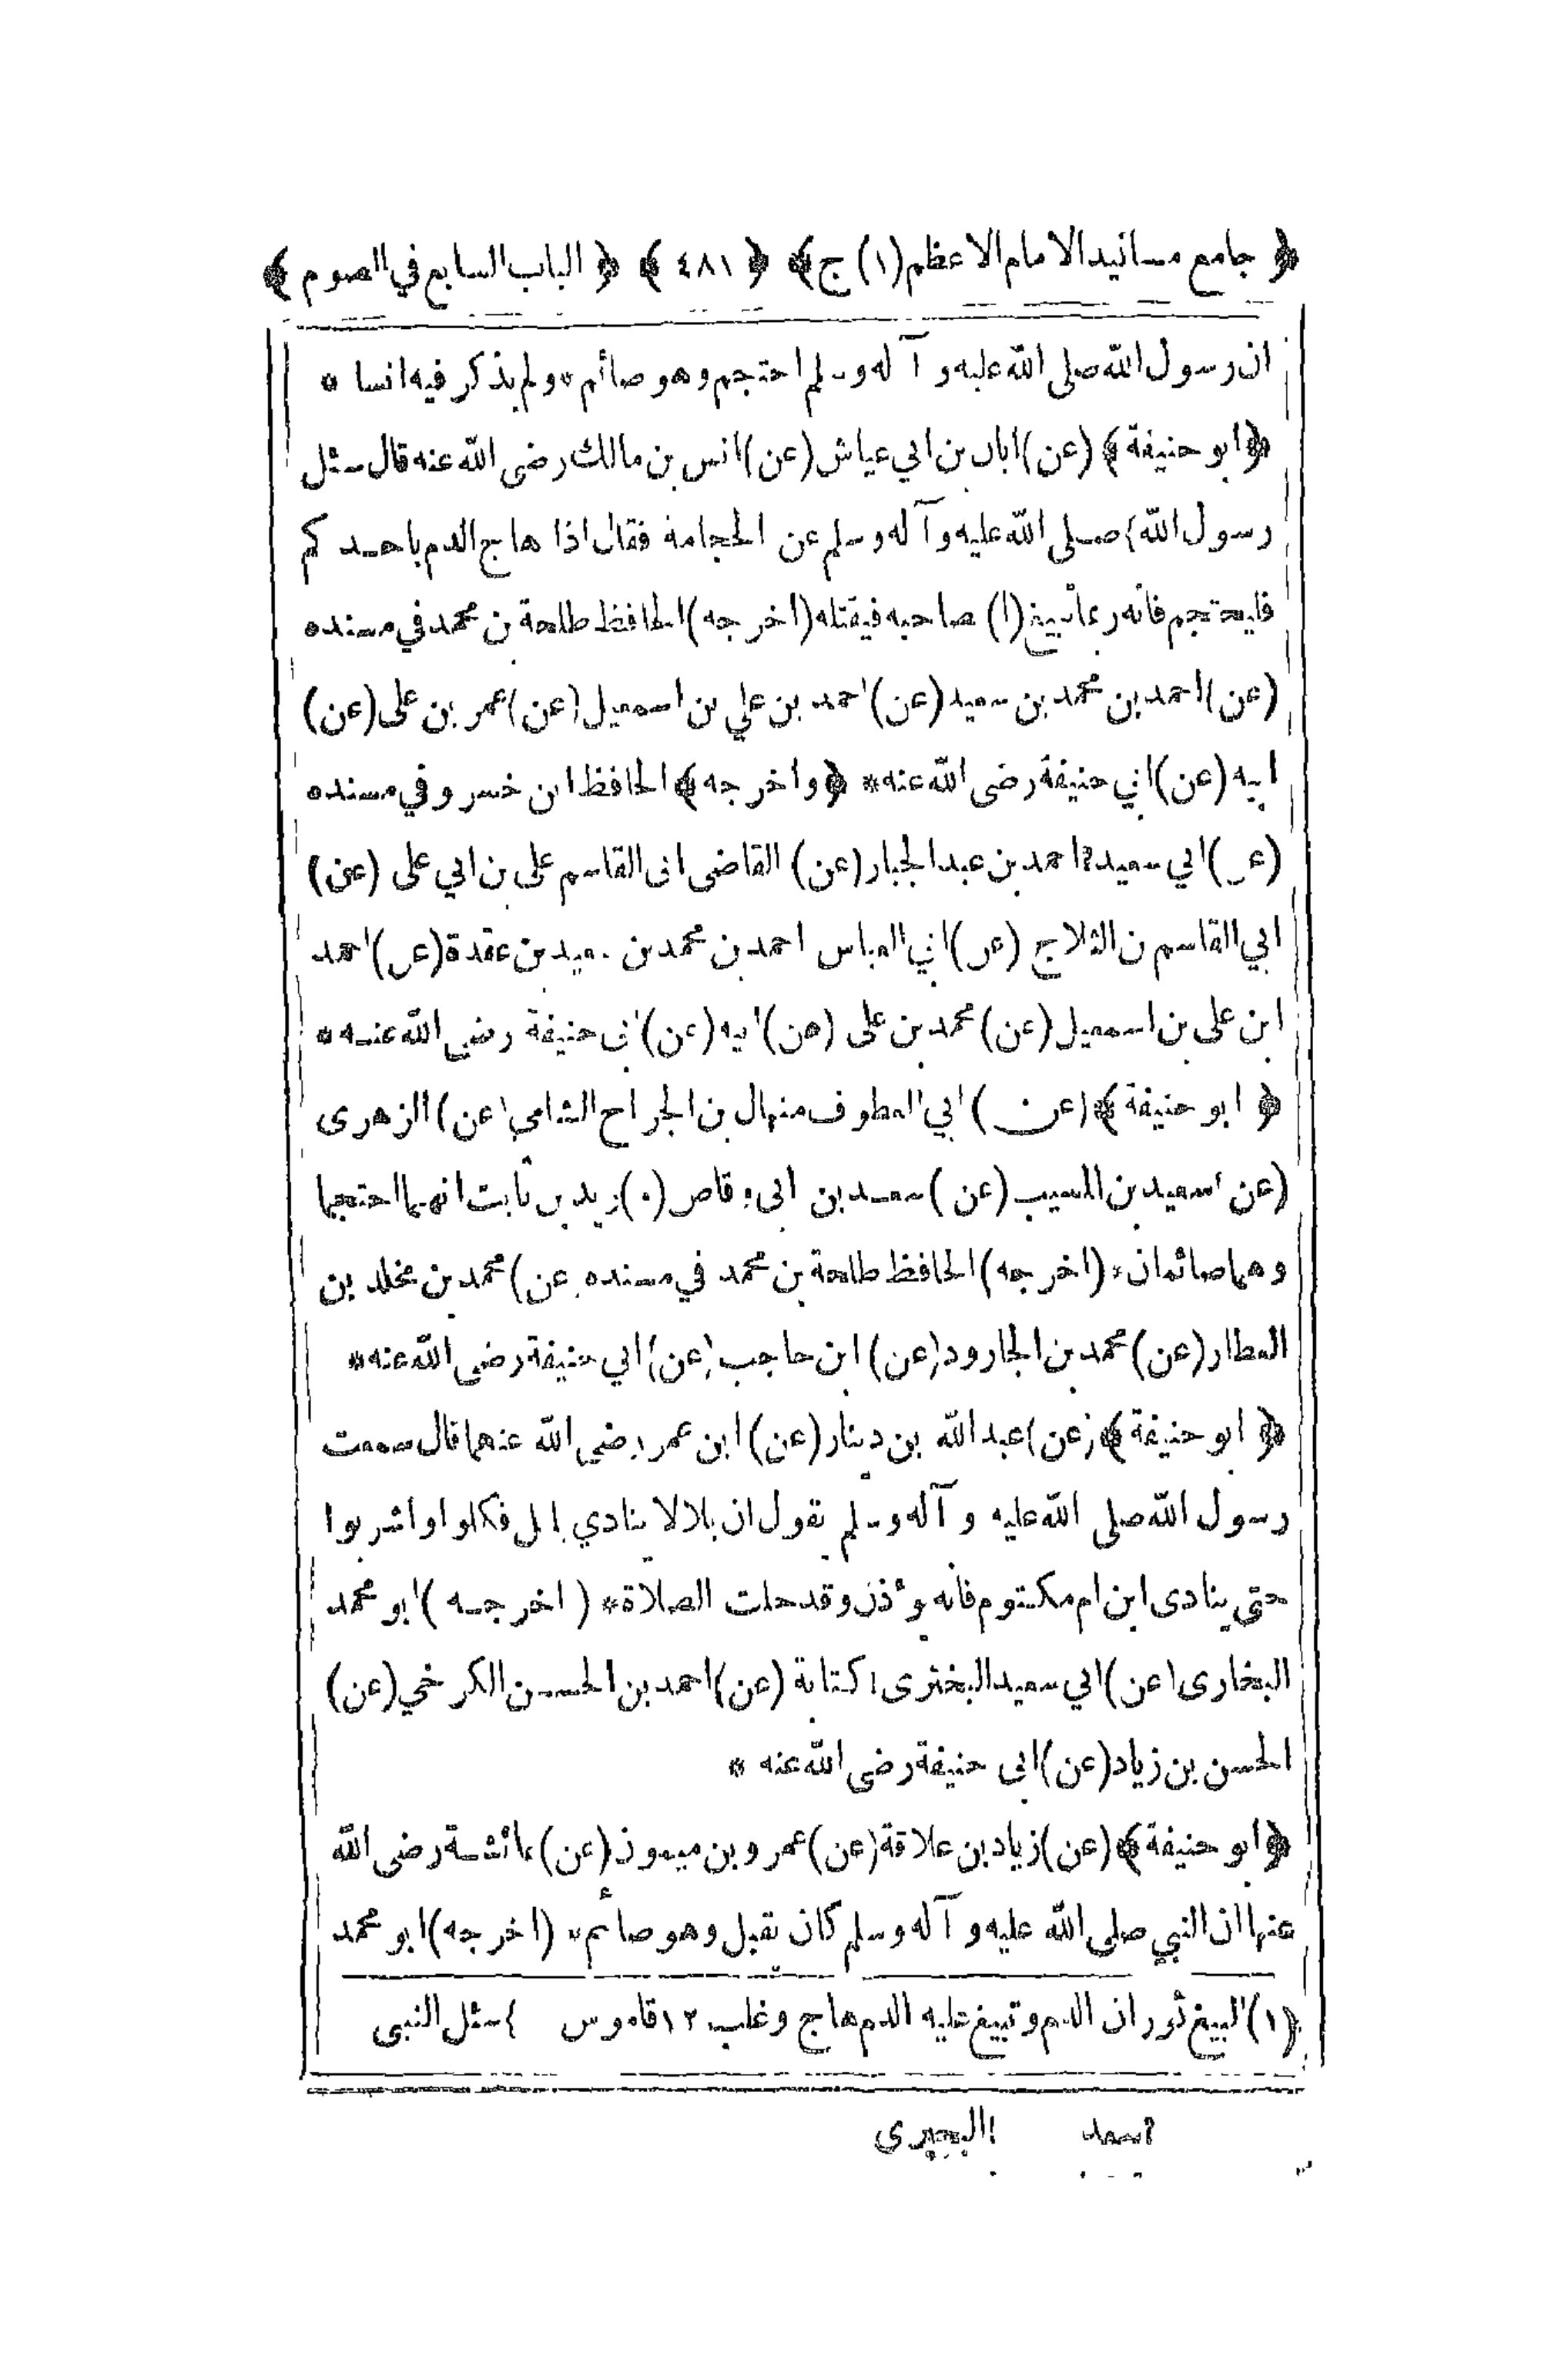 ﴿ جامع مسانيد الامام الاعظم (١) ج ﴾ ﴿ ٤٨١ ﴾ ﴿ الباب السابع في الصوم ﴾
ان رسول الله صلى الله عليه و آ له وسلم احتجم وهو صائم * ولم يذكر فيه انسا *
﴿ ابو حنيفة ﴾ (عن) ابان بن ابي عياش (عن) انس بن مالك رضى الله عنه قال سئل
رسول الله} صلى الله عليه و آ له وسلم عن الحجامة فقال اذا هاج الدم باحدكم
فليحتجم فانه ربما تبيغ (١) صاحبه فيقتله (اخرجه) الحافظ طلحة بن محمد في مسنده
(عن) احمد بن محمد بن سعيد (عن) احمد بن علي بن اسمعيل (عن) عمر بن على (عن)
ابيه (عن) ابي حنيفة رضى الله عنه * ﴿ واخرجه ﴾ الحافظ ابن خسرو في مسنده
(عن) ابي سعيد؟ احمد بن عبد الجبار (عن) القاضى ابى القاسم على بن ابي على (عن)
ابي القاسم بن الثلاج (عن) ابي العباس احمد بن محمد بن سعيد بن عقدة (عن) احمد
ابن على بن اسمعيل (عن) محمد بن على (عن) ابيه (عن) ابى حنيفة رضى الله عنه *
﴿ ابو حنيفة ﴾ (عن) ابي العطوف منهال بن الجراح الشامي (عن) الزهرى
(عن) سعيد بن المسيب (عن) سعد بن ابى وقاص (و) زيد بن ثابت انهما احتجما
وهما صائمان * (اخرجه) الحافظ طلحة بن محمد في مسنده (عن) محمد بن مخلد بن
العطار (عن) محمد بن الجارود (عن) ابن حاجب (عن) ابي حنيفة رضى الله عنه *
﴿ ابو حنيفة ﴾ (عن) عبد الله بن دينار (عن) ابن عمر رضى الله عنهما قال سمعت
رسول الله صلى الله عليه و آله وسلم يقول ان بلالا ينادي بليل فكلوا واشربوا
حتى ينادى ابن ام مكتوم فانه يؤذن وقد حلت الصلاة * (اخرجه) ابو محمد
البخارى (عن) ابي سعيد البخترى! كتابة (عن) احمد بن الحسين الكرخي (عن)
الحسن بن زياد (عن) ابى حنيفة رضى الله عنه *
﴿ ابو حنيفة ﴾ (عن) زياد بن علاقة (عن) عمرو بن ميمون (عن) عائشة رضى الله
عنها ان النبي صلى الله عليه و آ له وسلم كان يقبل وهو صائم * (اخرجه) ابو محمد
(١) البيغ ثوران الدم وتبيغ عليه الدم هاج وغلب ١٢ قاموس } سئل النبى
؟سعد !البحيرى